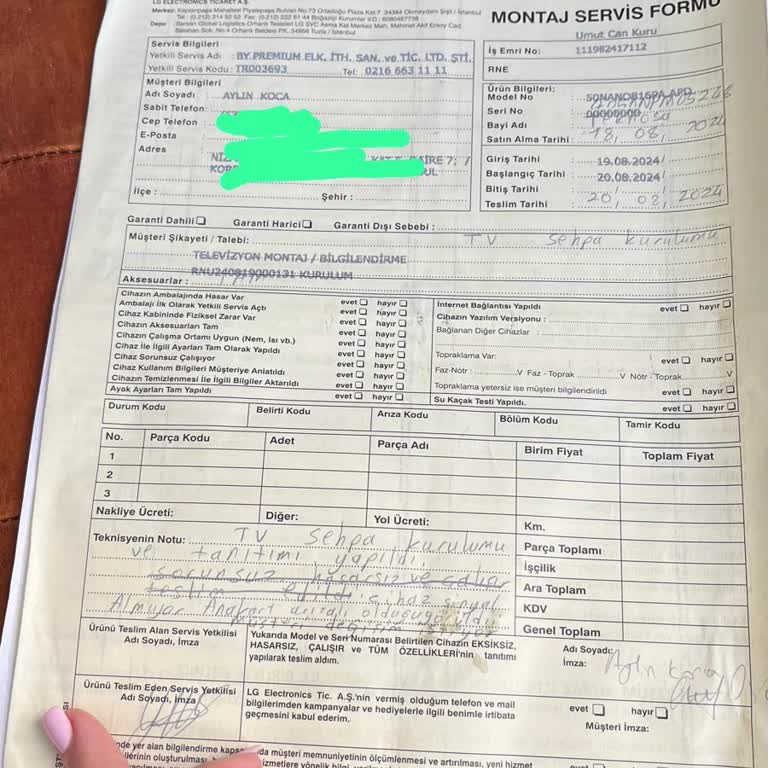 LG ELECTRONICS TİCARET A.Ş.
Merkez: Kaptanpaşa Mahallesi Piyalepaşa Bulvarı No:73 Ortadoğu Plaza Kat:7 34384 Okmeydanı Şişli / İstanbul
Tel : (0.212) 314 52 52 Fax: (0.212) 222 61 44 Boğaziçi Kurumlar V.D.: 6080467738
Depo : Barsan Global Logistics Orhanlı Tesisleri LG SVC Asma Kat Merkez Mah. Mehmet Akif Ersoy Cad.
No:4 Orhanlı Beldesi PK. 34956 Tuzla / İstanbul
MONTAJ SERVİS FORMU
Umut Can Kuru
İş Emri No: 111982417112
RNE
Servis Bilgileri
Yetkili Servis Adı : BY PREMIUM ELK. İTH. SAN. ve TİC. LTD. ŞTİ.
Yetkili Servis Kodu : TR003693 Tel: 0216 663 11 11
Müşteri Bilgileri
Adı Soyadı : AYLIN KOCA
Sabit Telefon:
Cep Telefon
E-Posta
Adres
DAİRE 7; /
İlçe : Şehir :
Ürün Bilgileri:
Model No 50NANO816PA.APD
Seri No 00000000
Bayi Adı
Satın Alma Tarihi : 18, 08, 2024
Giriş Tarihi : 19.08.2024/
Başlangıç Tarihi : 20.08.2024/
Bitiş Tarihi :
Teslim Tarihi : 20, 08, 2024
Garanti Dahili Garanti Harici Garanti Dışı Sebebi :
Müşteri Şikayeti / Talebi: TV sehpa kurulumu
TELEVİZYON MONTAJ / BİLGİLENDİRME
RNU240819000131 KURULUM
Aksesuarlar :
Cihazın Ambalajında Hasar Var evet hayır
Ambalajı İlk Olarak Yetkili Servis Açtı evet hayır
Cihaz Kabininde Fiziksel Zarar Var evet hayır
Cihazın Aksesuarları Tam evet hayır
Cihazın Çalışma Ortamı Uygun (Nem, Isı vb.) evet hayır
Cihaz İle İlgili Ayarları Tam Olarak Yapıldı evet hayır
Cihaz Sorunsuz Çalışıyor evet hayır
Cihaz Kullanım Bilgileri Müşteriye Anlatıldı evet hayır
Cihazın Temizlenmesi İle İlgili Bilgiler Aktarıldı evet hayır
Ayak Ayarları Tam Yapıldı evet hayır
İnternet Bağlantısı Yapıldı evet hayır
Cihazın Yazılım Versiyonu :
Bağlanan Diğer Cihazlar :
Topraklama Var: evet hayır
Faz-Nötr : V Faz - Toprak V Nötr - Toprak V
Topraklama yetersiz ise müşteri bilgilendirildi evet hayır
Su Kaçak Testi Yapıldı. evet hayır
Durum Kodu Belirti Kodu Arıza Kodu Bölüm Kodu Tamir Kodu
No. Parça Kodu Adet Parça Adı Birim Fiyat Toplam Fiyat
1
2
3
Nakliye Ücreti: Diğer: Yol Ücreti: Km.
Parça Toplamı
İşçilik
Ara Toplam
KDV
Genel Toplam
Teknisyenin Notu: TV sehpa kurulumu
ve tanıtımı yapıldı.
sorunsuz hasarsız ve çalışır
teslim edildi. cihaz sinyal
Almıyor Anakart arızalı olduğu
müşteri değişim istiyor
Ürünü Teslim Alan Servis Yetkilisi
Adı Soyadı, İmza
Yukarıda Model ve Seri Numarası Belirtilen Cihazın EKSİKSİZ,
HASARSIZ, ÇALIŞIR ve TÜM ÖZELLİKLERİ'nin tanıtımı
yapılarak teslim aldım.
Adı Soyadı:
İmza: Aylin Koca
Ürünü Teslim Eden Servis Yetkilisi
Adı Soyadı, İmza
LG Electronics Tic. A.Ş.'nin vermiş olduğum telefon ve mail
bilgilerimden kampanyalar ve hediyelerle ilgili benimle irtibata
geçmesini kabul ederim.
evet hayır
Müşteri İmza:
nde yer alan bilgilendirme
da müşteri memnuniyetinin ölçümlenmesi ve artırılması, yeni hizmet
lerinin oluşturulması,